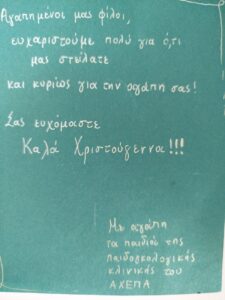 Αγαπημένοι μας φίλοι,
ευχαριστούμε πολύ για ό,τι
μας στείλατε
και κυρίως για την αγάπη σας!
Σας ευχόμαστε
Καλά Χριστούγεννα!!!
Με αγάπη
τα παιδιά της
παιδογκολογικής
κλινικής του
ΑΧΕΠΑ